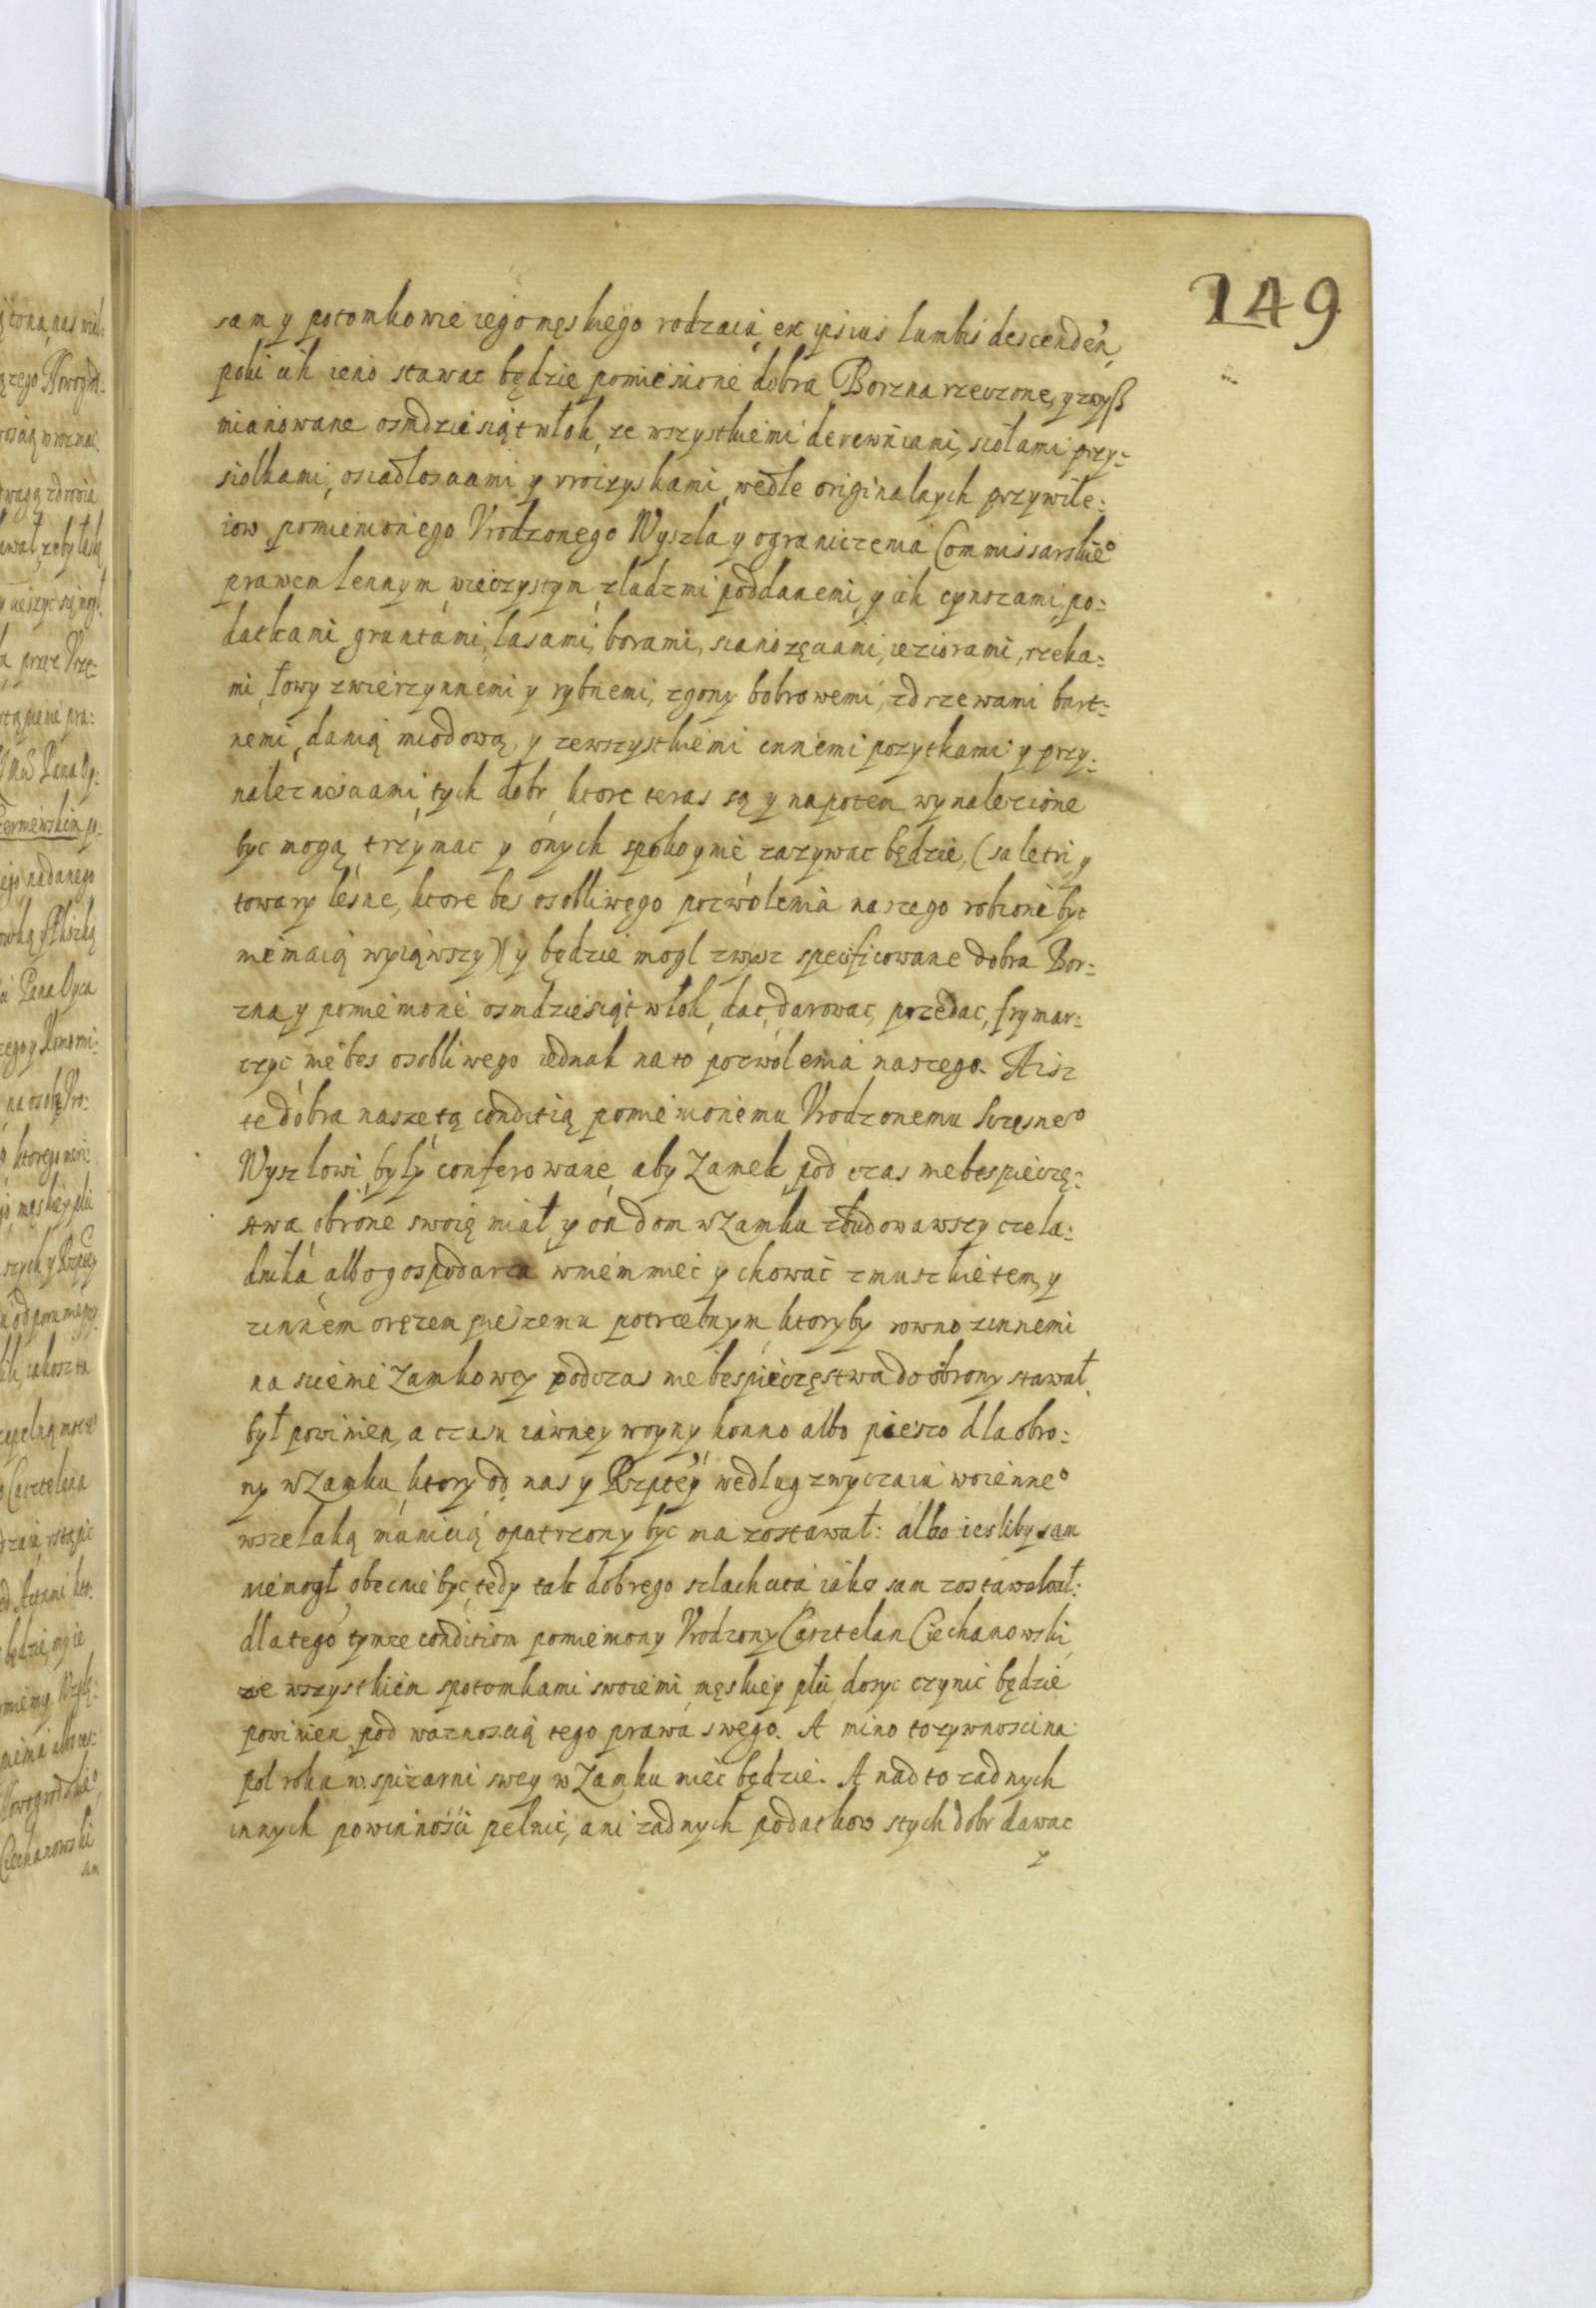 149
sam y potomkowie iego męskiego rodzaiu, ex ipsius lumbis descenden,
poki ich ieno stawac będzie pomienione dobra Borzna rzeczone, y zwyß
mianowane osmdziesiąt włok, ze wszystkiemi derewniami, siołami przy=
siolkami, osiadłosciami y vroczyskami, wedle originalnych przywile=
iow pomienionego Vrodzonego Wyszla y ograniczenia Commissarskie°
prawem lennym, wieczystym, zludzmi poddanemi, y ich czynszami, po=
datkami, gruntami, lasami, borami, sianożęciami, ieziorami, rzeka=
mi, łowy zwierzynnemi y rybnemi, zgony bobrowemi, zdrzewami bart=
nemi, danią miodową, y zewszystkiemi innemi pozytkami y przy=
naleznosciami, tych dobr, ktore teras są y napotem wynalezione
byc mogą, trzymac y onych spokoynie zazywac będzie, (saletri y
towary leśne, ktore bes osobliwego pozwolenia naszego robione byc
niemaią wyiąwszy) y będzie mogl zwysz specificowane dobra Bor=
zna y pomienione osmdziesiąt włok, dac, darowac, przedac, frymar=
czyc nie bes osobliwego iednak na to pozwolenia naszego. A isz
te dobra nasze tą conditią pomienionemu Vrodzonemu Sczęsne°
Wyszlowi były conferowane, aby Zamek pod czas niebespieczę=
stwa obrone swoię miał, y on dom w Zamku zbudowawszy czela=
dnika albo gospodarza wniem miec y chować zmuszkietem, y
zinnem orężem pieszemu potrzebnym, ktoryby rowno zinnemi
na scienie Zamkowey podczas niebespieczęstwa do obrony stawał
był powinien, a czasu iawney woyny konno albo pieszo dla obro=
ny w Zamku, ktory od nas y Rzptey według zwyczaiu woienne°
wszelaką municią opatrzony byc ma zostawał: albo iesliby sam
niemogł obecnie byc, tedy tak dobrego szlachcica iako sam zostawował:
dla tego tymze conditiom pomieniony Vrodzony Casztelan Ciechanowski,
ze wszystkiem spotomkami swoiemi męskiey płci, dosyc czynic będzie
powinien, pod waznoscią tego prawa swego. A mimo to zywnosci na
pol roka w spizarni swey w Zamku miec będzie. A nad to zadnych
innych powinnośći pełnic, ani zadnych podatkow stych dobr dawac
y